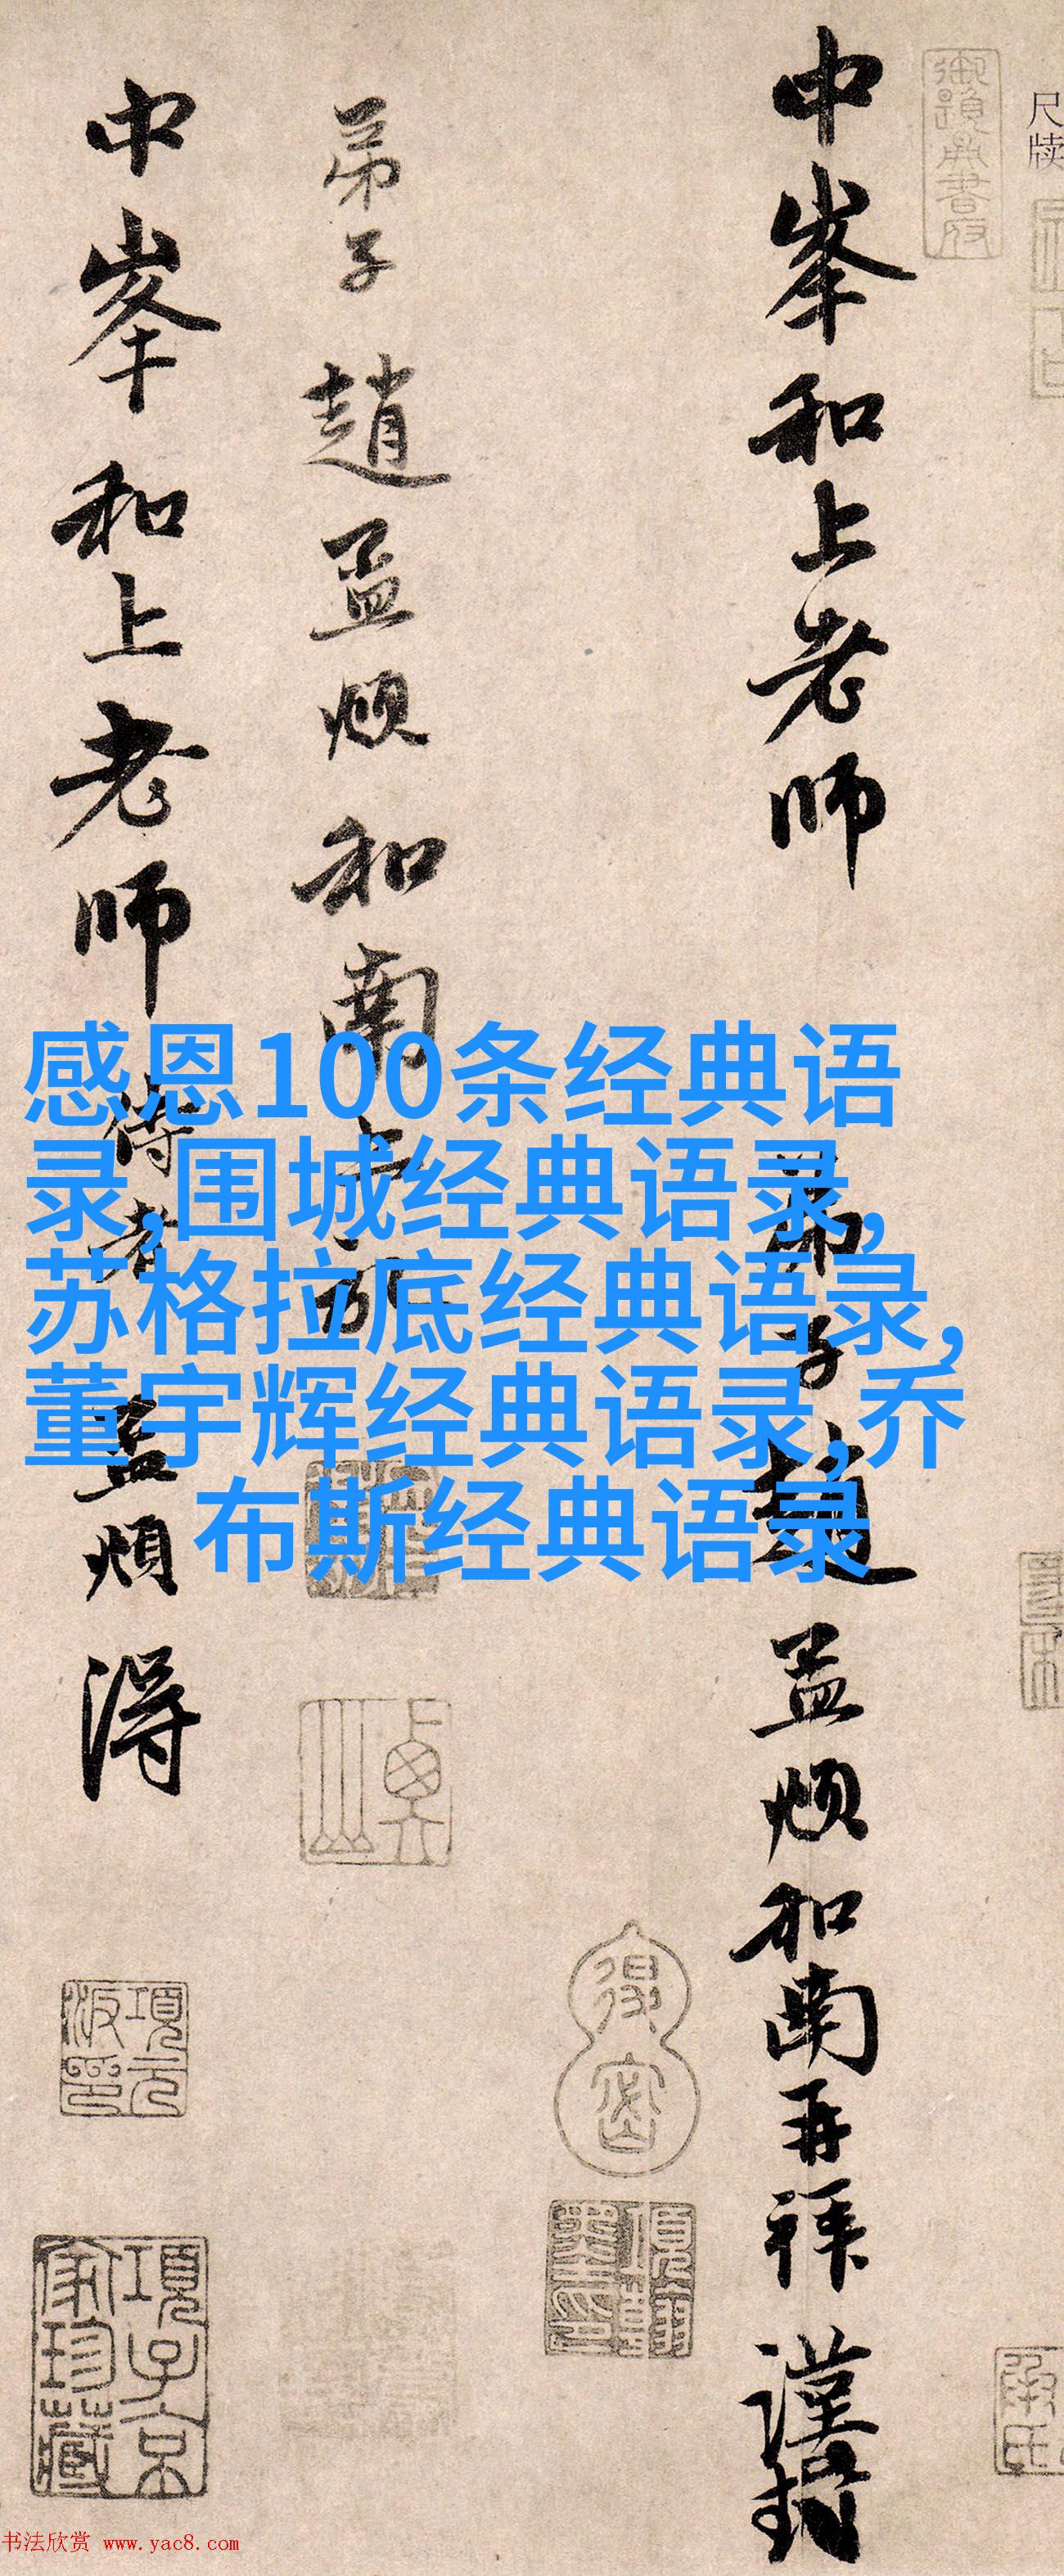 尺牍
中峯和上老师
弟子趙孟頫和南再拜謹封
弟子趙孟頫和南
中峯和上老师侍者孟頫
感恩100条经典语
录,围城经典语录,
苏格拉底经典语录,
董宇辉经典语录,乔
布斯经典语录
項元汴印
項子京家珍藏
书法欣赏 www.yac8.com